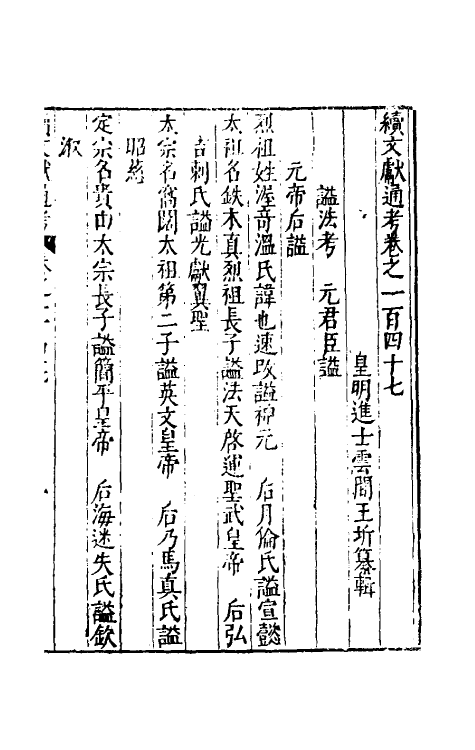 續文獻通考卷之一百四十七
皇明進士雲間王圻纂輯
謚法考 元君臣謚
元帝后謚
烈祖姓渥奇溫氏諱也速改謚神元 后月倫氏謚宣懿
太祖名鉄木真烈祖長子謚法天啓運聖武皇帝 后弘
吉剌氏謚光獻翼聖
太宗名窩闊太祖第二子謚英文皇帝 后乃馬真氏謚
昭慈
定宗名貴由太宗長子謚簡平皇帝 后海迷失氏謚欽
淑